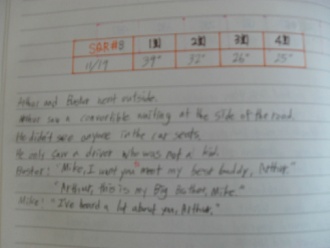 SAR#8 1回 2回 3回 4回
11/19 39" 32" 26" 25"
Arthur and Buster went outside.
Arthur saw a convertible waiting at the side of the road.
He didn't see anyone in the car seats.
He only saw a driver who was not a kid.
Buster: "Mike, I want you meet my best buddy, Arthur."
"Arthur, this is my Big Brother, Mike."
Mike: "I've heard a lot about you, Arthur."